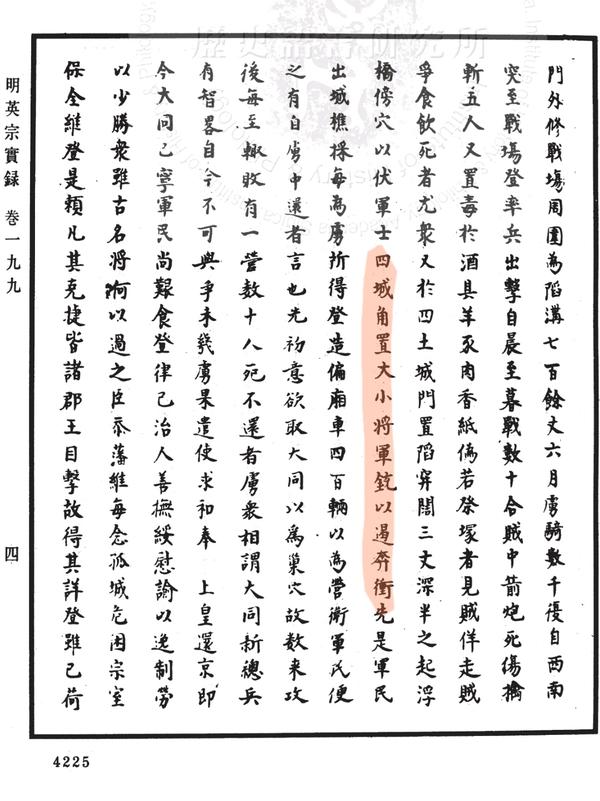 門外修戰場周圍為陷溝七百餘丈六月虜騎數千復自西南
突至戰場登率兵出擊自晨至暮戰數十合賊中箭炮死傷擒
斬五人又置毒於酒具羊豕肉香紙偽若祭塚者見賊佯走賊
爭食飲死者尤衆又於四土城門置陷穽闊三丈深半之起浮
橋傍穴以伏軍士四城角置大小將軍銃以遏奔衝先是軍民
出城樵採每為虜所得登造偏廂車四百輛以為營衛軍民便
之有自虜中還者言也先初意欲取大同以為巢穴故數来攻
後每至輒敗有一營数十人死不還者虜衆相謂大同新總兵
有智畧自今不可與爭未幾虜果遣使求和奉 上皇還京即
今大同已寧軍民尚艱食登律己治人善撫綏慰諭以逸制勞
以少勝衆雖古名將何以過之臣忝藩維每念孤城危困宗室
保全維登是頼凡其克捷皆諸郡王目擊故得其詳登雖已荷
明英宗實録 卷一九九
四
4225
歷史語言研究所